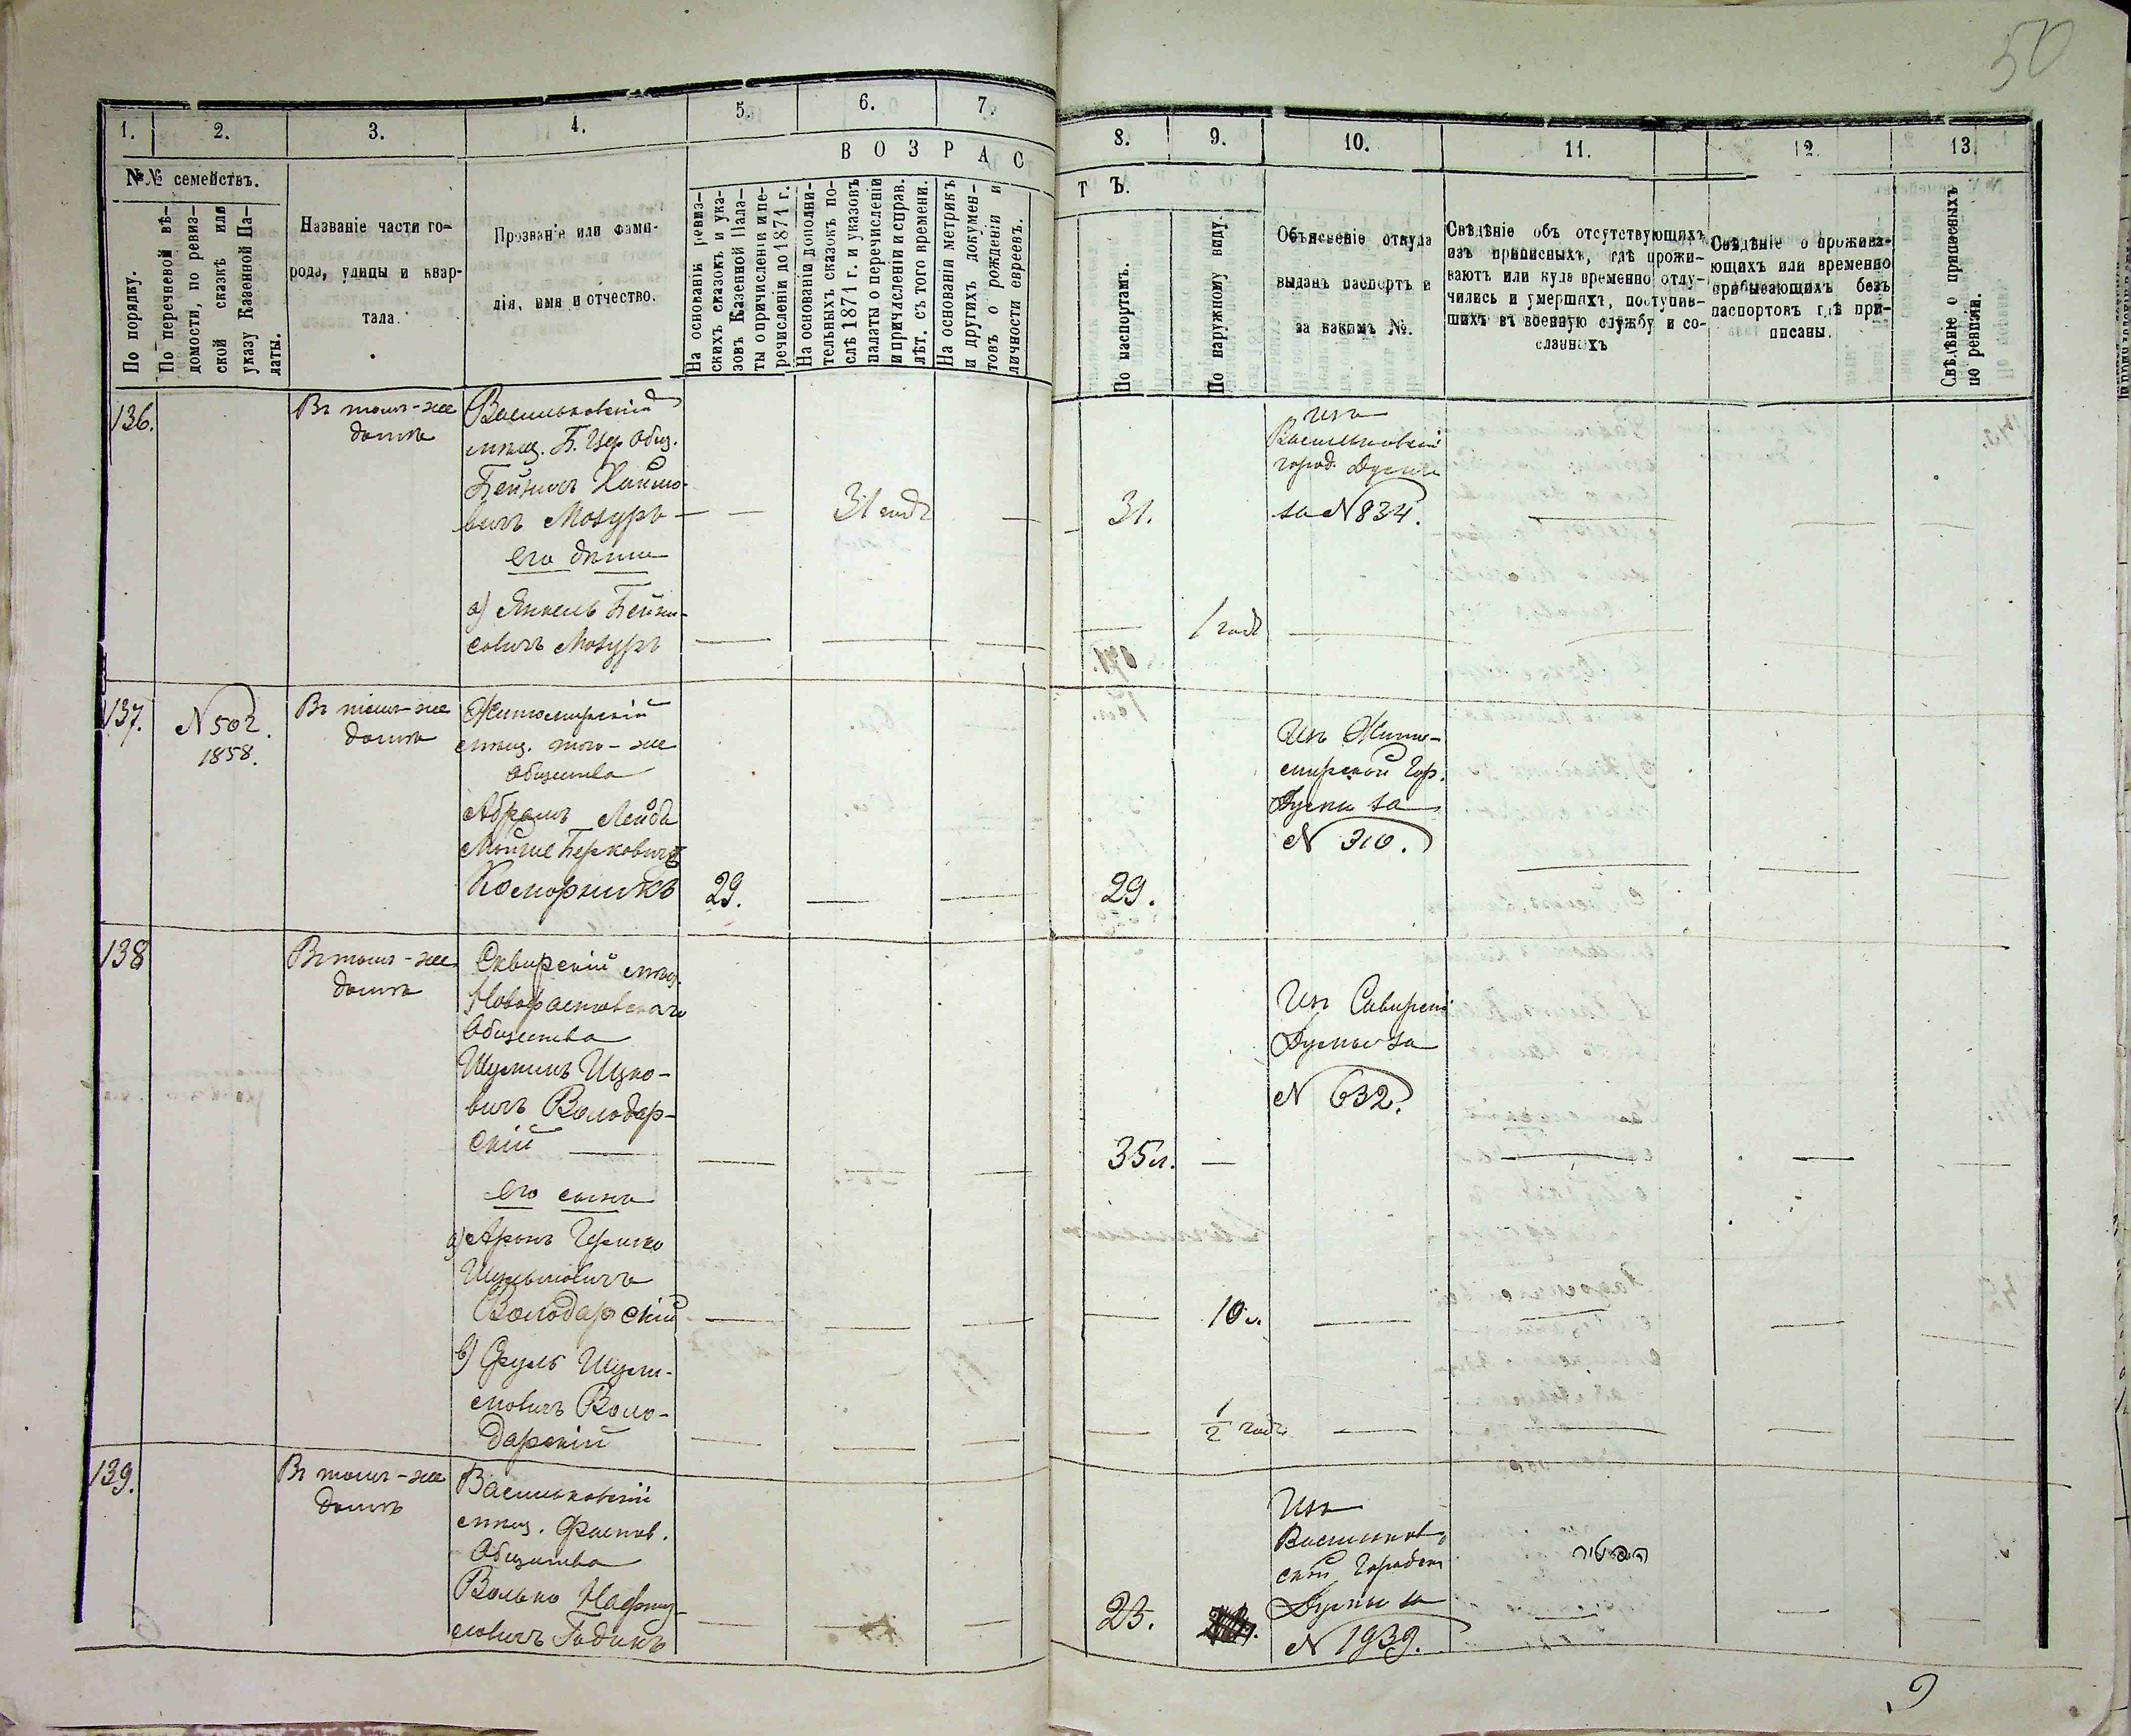 50
1.
2.
3.
4.
5.
6.
7.
8.
9.
10.
11.
12.
13.
ВОЗРАС
ТЪ.
№№ семействъ.
По порядку.
По перечневой вѣ-
домости, по ревиз-
ской сказкѣ или
указу Казенной Па-
латы.
Названіе части го-
рода, улицы и квар-
тала.
Прозваніе или фами-
лія, имя и отчество.
На основаніи ревиз-
скихъ сказокъ и ука-
зовъ Казенной Пала-
ты о причисленіи и пе-
речисленіи до 1874 г.
На основаніи дополни-
тельныхъ сказокъ по-
слѣ 1874 г. и указовъ
палаты о перечисленіи
и причисленіи и справ.
лѣт. съ того времени.
На основаніи метрикъ
и другихъ докумен-
товъ о рожденіи и
личности евреевъ.
По паспортамъ.
По наружному виду.
Объясненіе откуда
выданъ паспортъ и
за какимъ №.
Свѣдѣніе объ отсутствующихъ
изъ приписныхъ, гдѣ прожи-
ваютъ или куда временно отлу-
чились и умершихъ, поступив-
шихъ въ военную службу и со-
сланныхъ
Свѣдѣніе о прожива-
ющихъ или временно
прибывающихъ безъ
паспортовъ гдѣ при-
писаны.
Свѣдѣніе о приписныхъ
по ревизіи.
136.
Въ томъ-же
домѣ
Васильковскій
мѣщ. Б. Цер. Общ.
Бейнисъ Хаимо-
вичъ Мозуръ
31 годъ
31.
Изъ
Васильковской
город. Думы
за N 834.
его дѣти
а) Янкель Бейни-
совичъ Мозуръ
1 годъ
137.
N 502.
1858.
Въ томъ-же
домѣ
Житомирскій
мѣщ. того-же
общества
Абрамъ Лейба
Мойше Берковичъ
Коморникъ
29.
29.
Изъ Жито-
мирской Гор.
Думы за
N 310.
138
Въ томъ-же
домѣ
Сквирскій мѣщ.
Новофастовскаго
Общества
Шулимъ Ицко-
вичъ Володар-
скій
35 л.
Изъ Сквирской
Думы за
N 632.
его сыны
а) Аронъ Гершко
Шулимовичъ
Володарскій
10 л.
в) Сруль Шули-
мовичъ Воло-
дарскій
1/2 года
139.
Въ томъ-же
домѣ
Васильковскій
мѣщ. Фастов.
Общества
Волько
Годикъ
23.
Изъ
Васильков-
ской Городской
Думы за
N 1939.